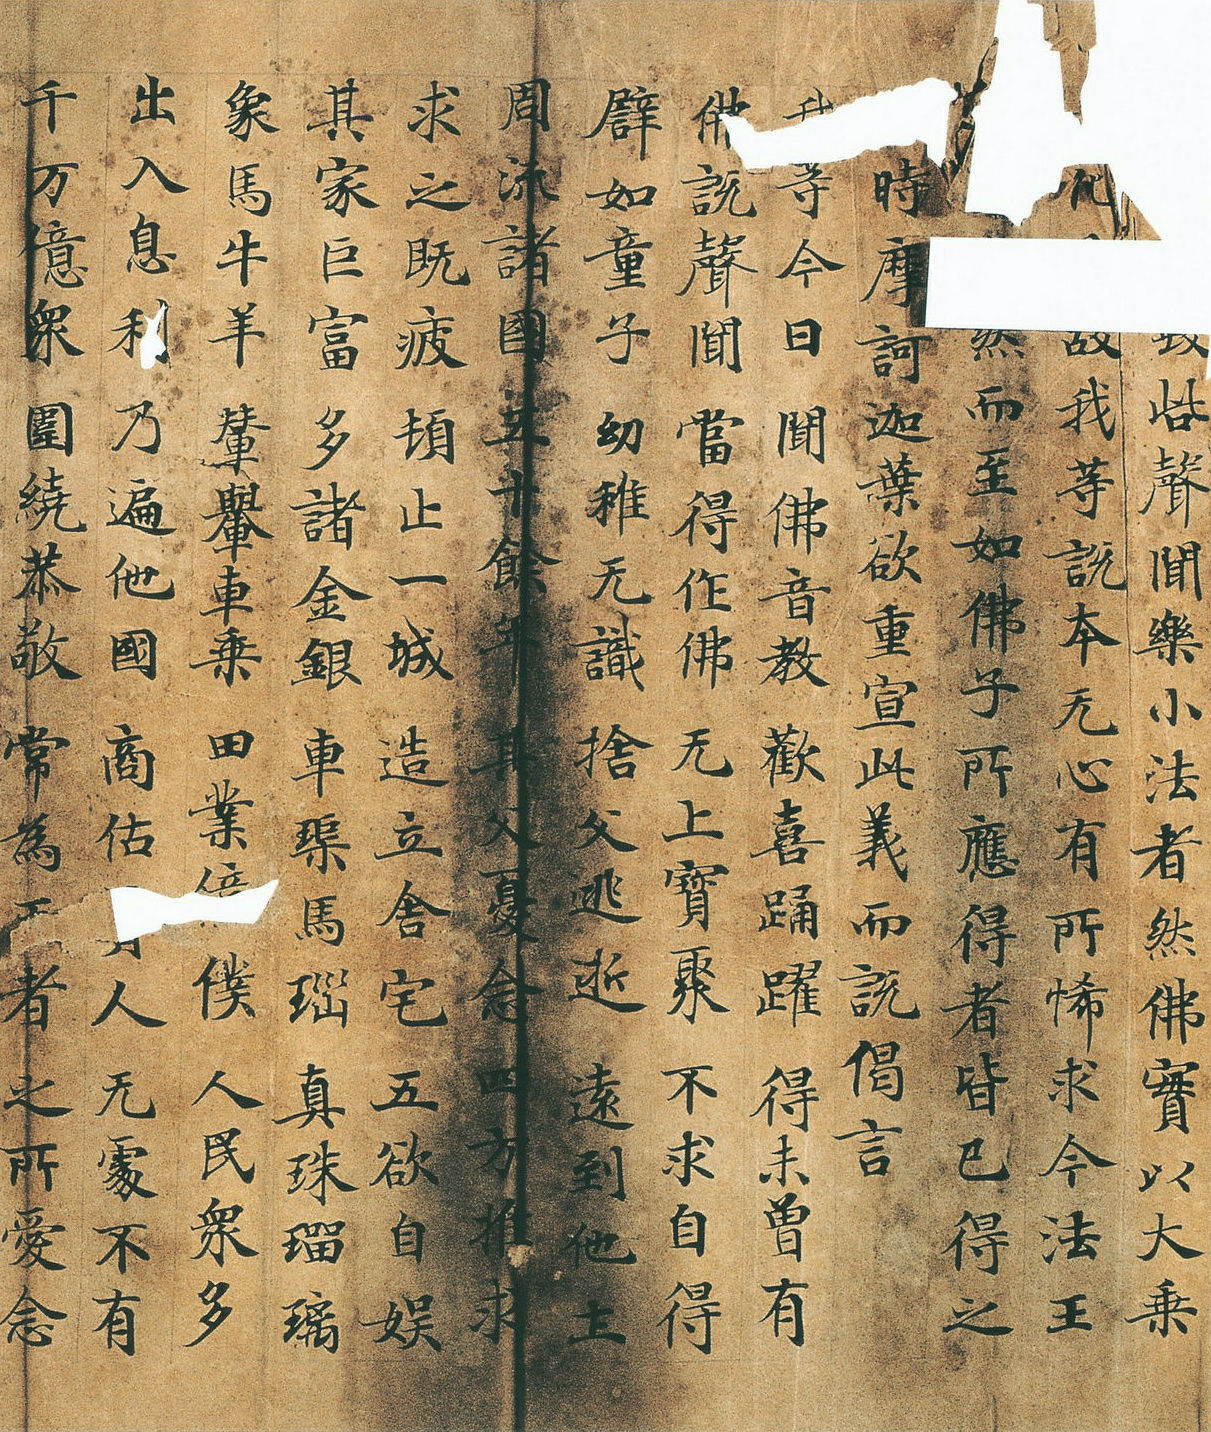 毀呰聲聞樂小法者然佛實以大乘
化故我等說本无心有所悕求今法王
然而至如佛子所應得者皆已得之
時摩訶迦葉欲重宣此義而說偈言
我等今日 聞佛音教 歡喜踊躍 得未曾有
佛說聲聞 當得作佛 无上寶聚 不求自得
辟如童子 幼稚无識 捨父逃逝 遠到他土
周流諸國 五十餘年 其父憂念 四方推求
求之既疲 頓止一城 造立舍宅 五欲自娛
其家巨富 多諸金銀 車璖馬瑙 真珠瑠璃
象馬牛羊 輦轝車乘 田業僕 人民衆多
出入息利 乃遍他國 商估人 无處不有
千万億衆 圍繞恭敬 常為王者 之所愛念